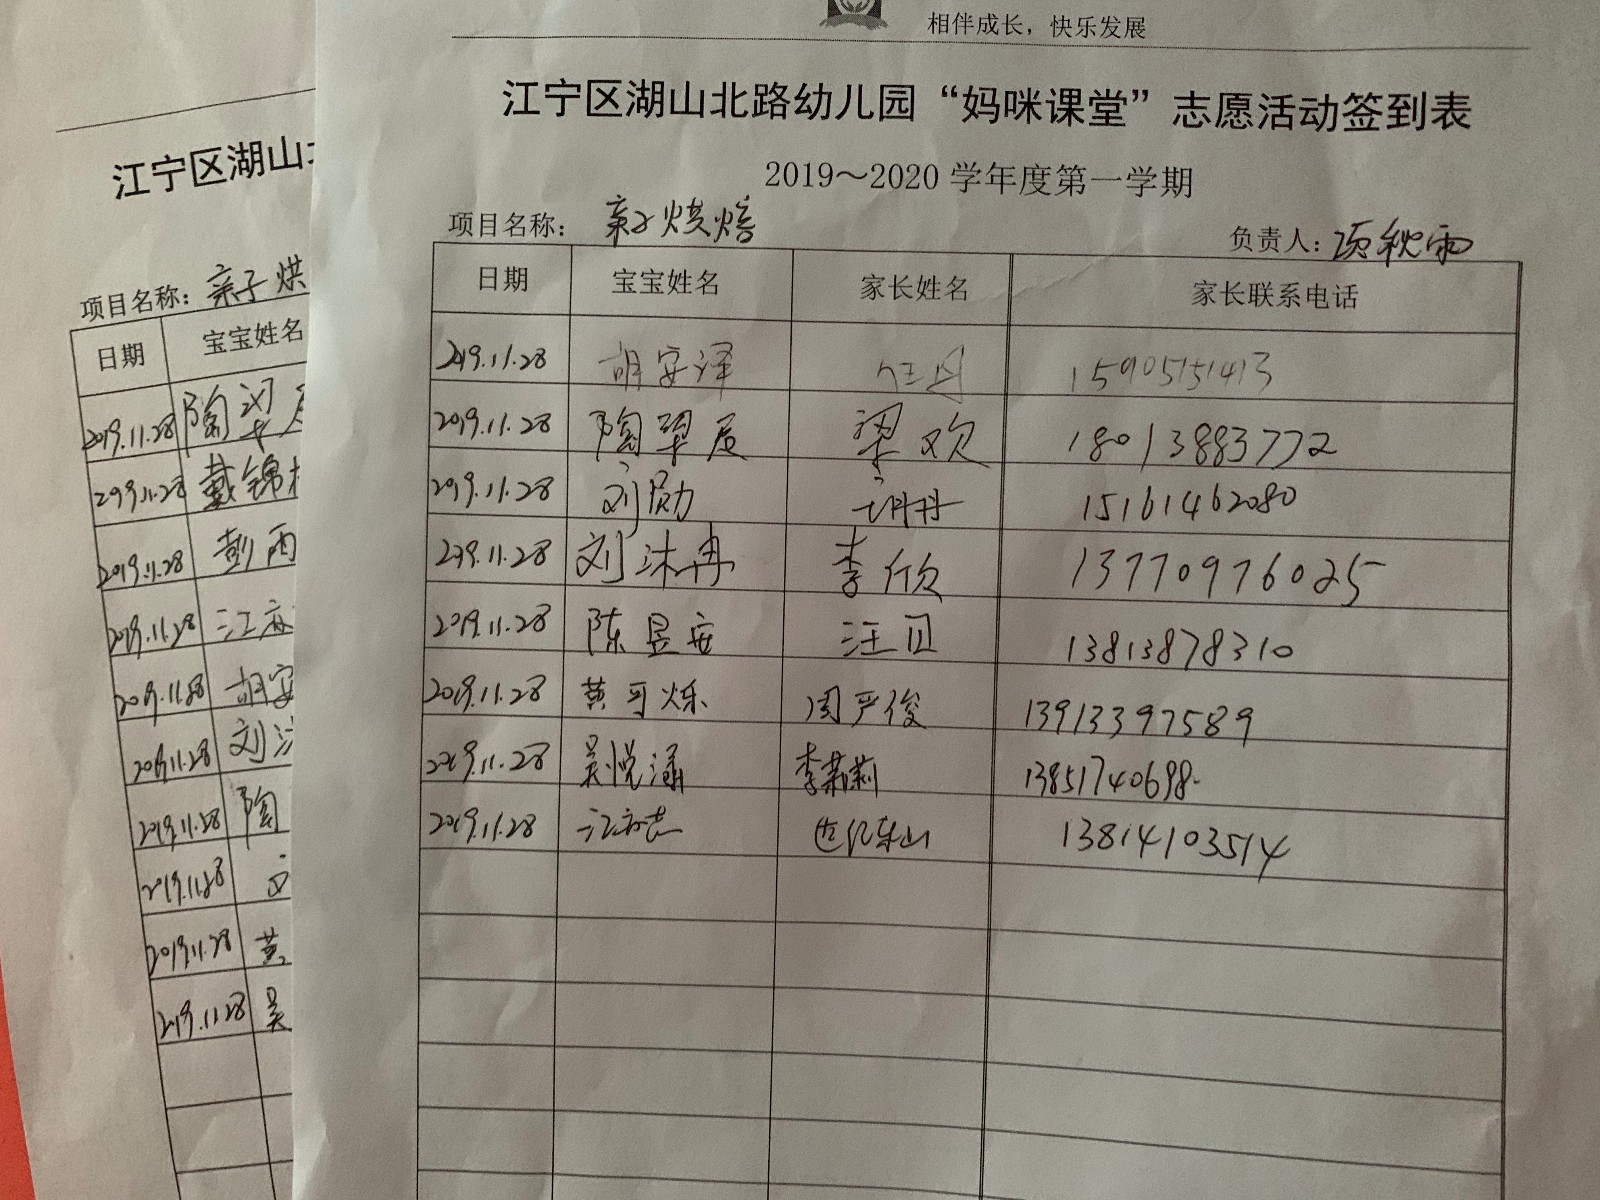 相伴成长，快乐发展
江宁区湖山北路幼儿园“妈咪课堂”志愿活动签到表
2019～2020 学年度第一学期
项目名称： 亲子烘焙 负责人：项秋雨
日期 宝宝姓名 家长姓名 家长联系电话
2019.11.28 胡安译 15905151413
2019.11.28 陶翠辰 梁欢 18013883772
2019.11.28 刘勋 胡丹 15161462080
2019.11.28 刘沐冉 李欣 13770976025
2019.11.28 陈昱安 汪贝 13813878310
2019.11.28 黄可烁 周严俊 13913397589
2019.11.28 吴悦潇 李莉莉 13851740698
2019.11.28 江亦志 13814103514
江宁区湖山
项目名称：亲子烘
日期 宝宝姓名
2019.11.28 陶
2019.11.28 戴锦
2019.11.28 彭雨
2019.11.28 江亦
2019.11.28 胡安
2019.11.28 刘
2019.11.28 陶
2019.11.28
2019.11.28 黄
2019.11.28 吴